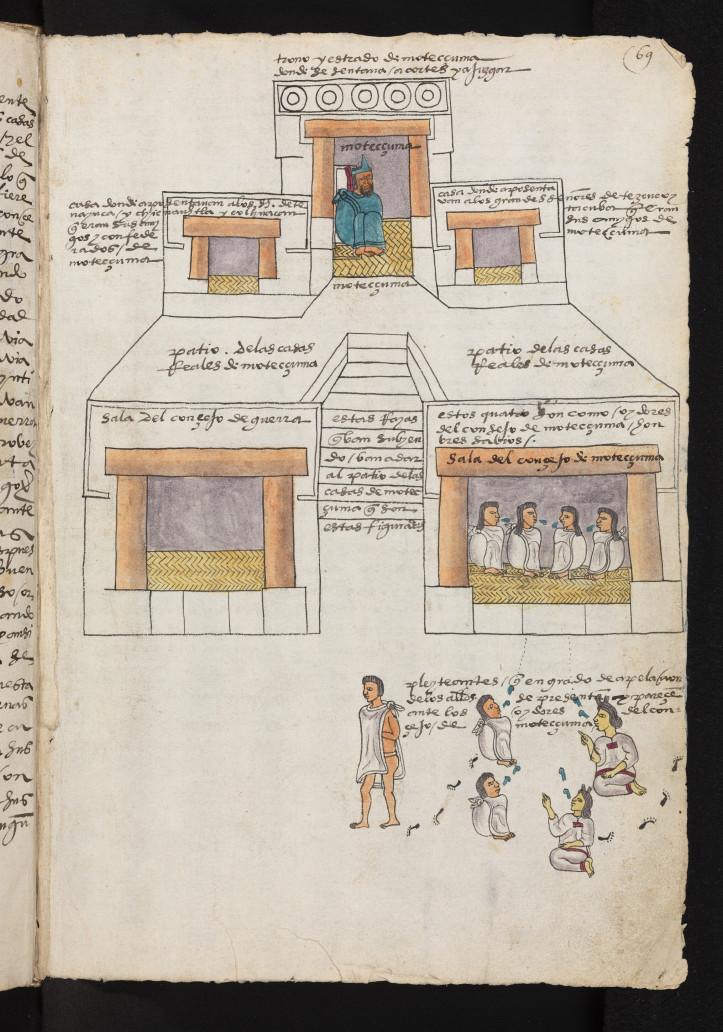 69
trono y estrado de moteccuma
donde se sentaua a cortes y a juzgar
moteccuma
casa donde aposentauan a los s.s. de te
nayuca / y chicnauhtla y colhuacan
q̃ eran sus ami
gos y confede
rados / de
moteccuma
casa donde aposenta
uan a los grandes señores de tezcuco y
tacuba q̃ eran
sus amygos de
moteccuma
moteccuma
patio . de las casas
Reales de moteccuma
patio de las casas
Reales de moteccuma
Sala del concejo de guerra
estas Rayas
q̃ ban subyen
do / ban a dar
al patio de las
casas de motec
cuma q̃ son
estas figuradas
estos quatro son como / oydores
del consejo de moteccuma / hon
bres sabios /.
Sala del concejo de moteccuma
pleyteantes / q̃ en grado de apelacion
de los alldes se presentan y pareçe
ante los oydores del con
çejo / de moteccuma